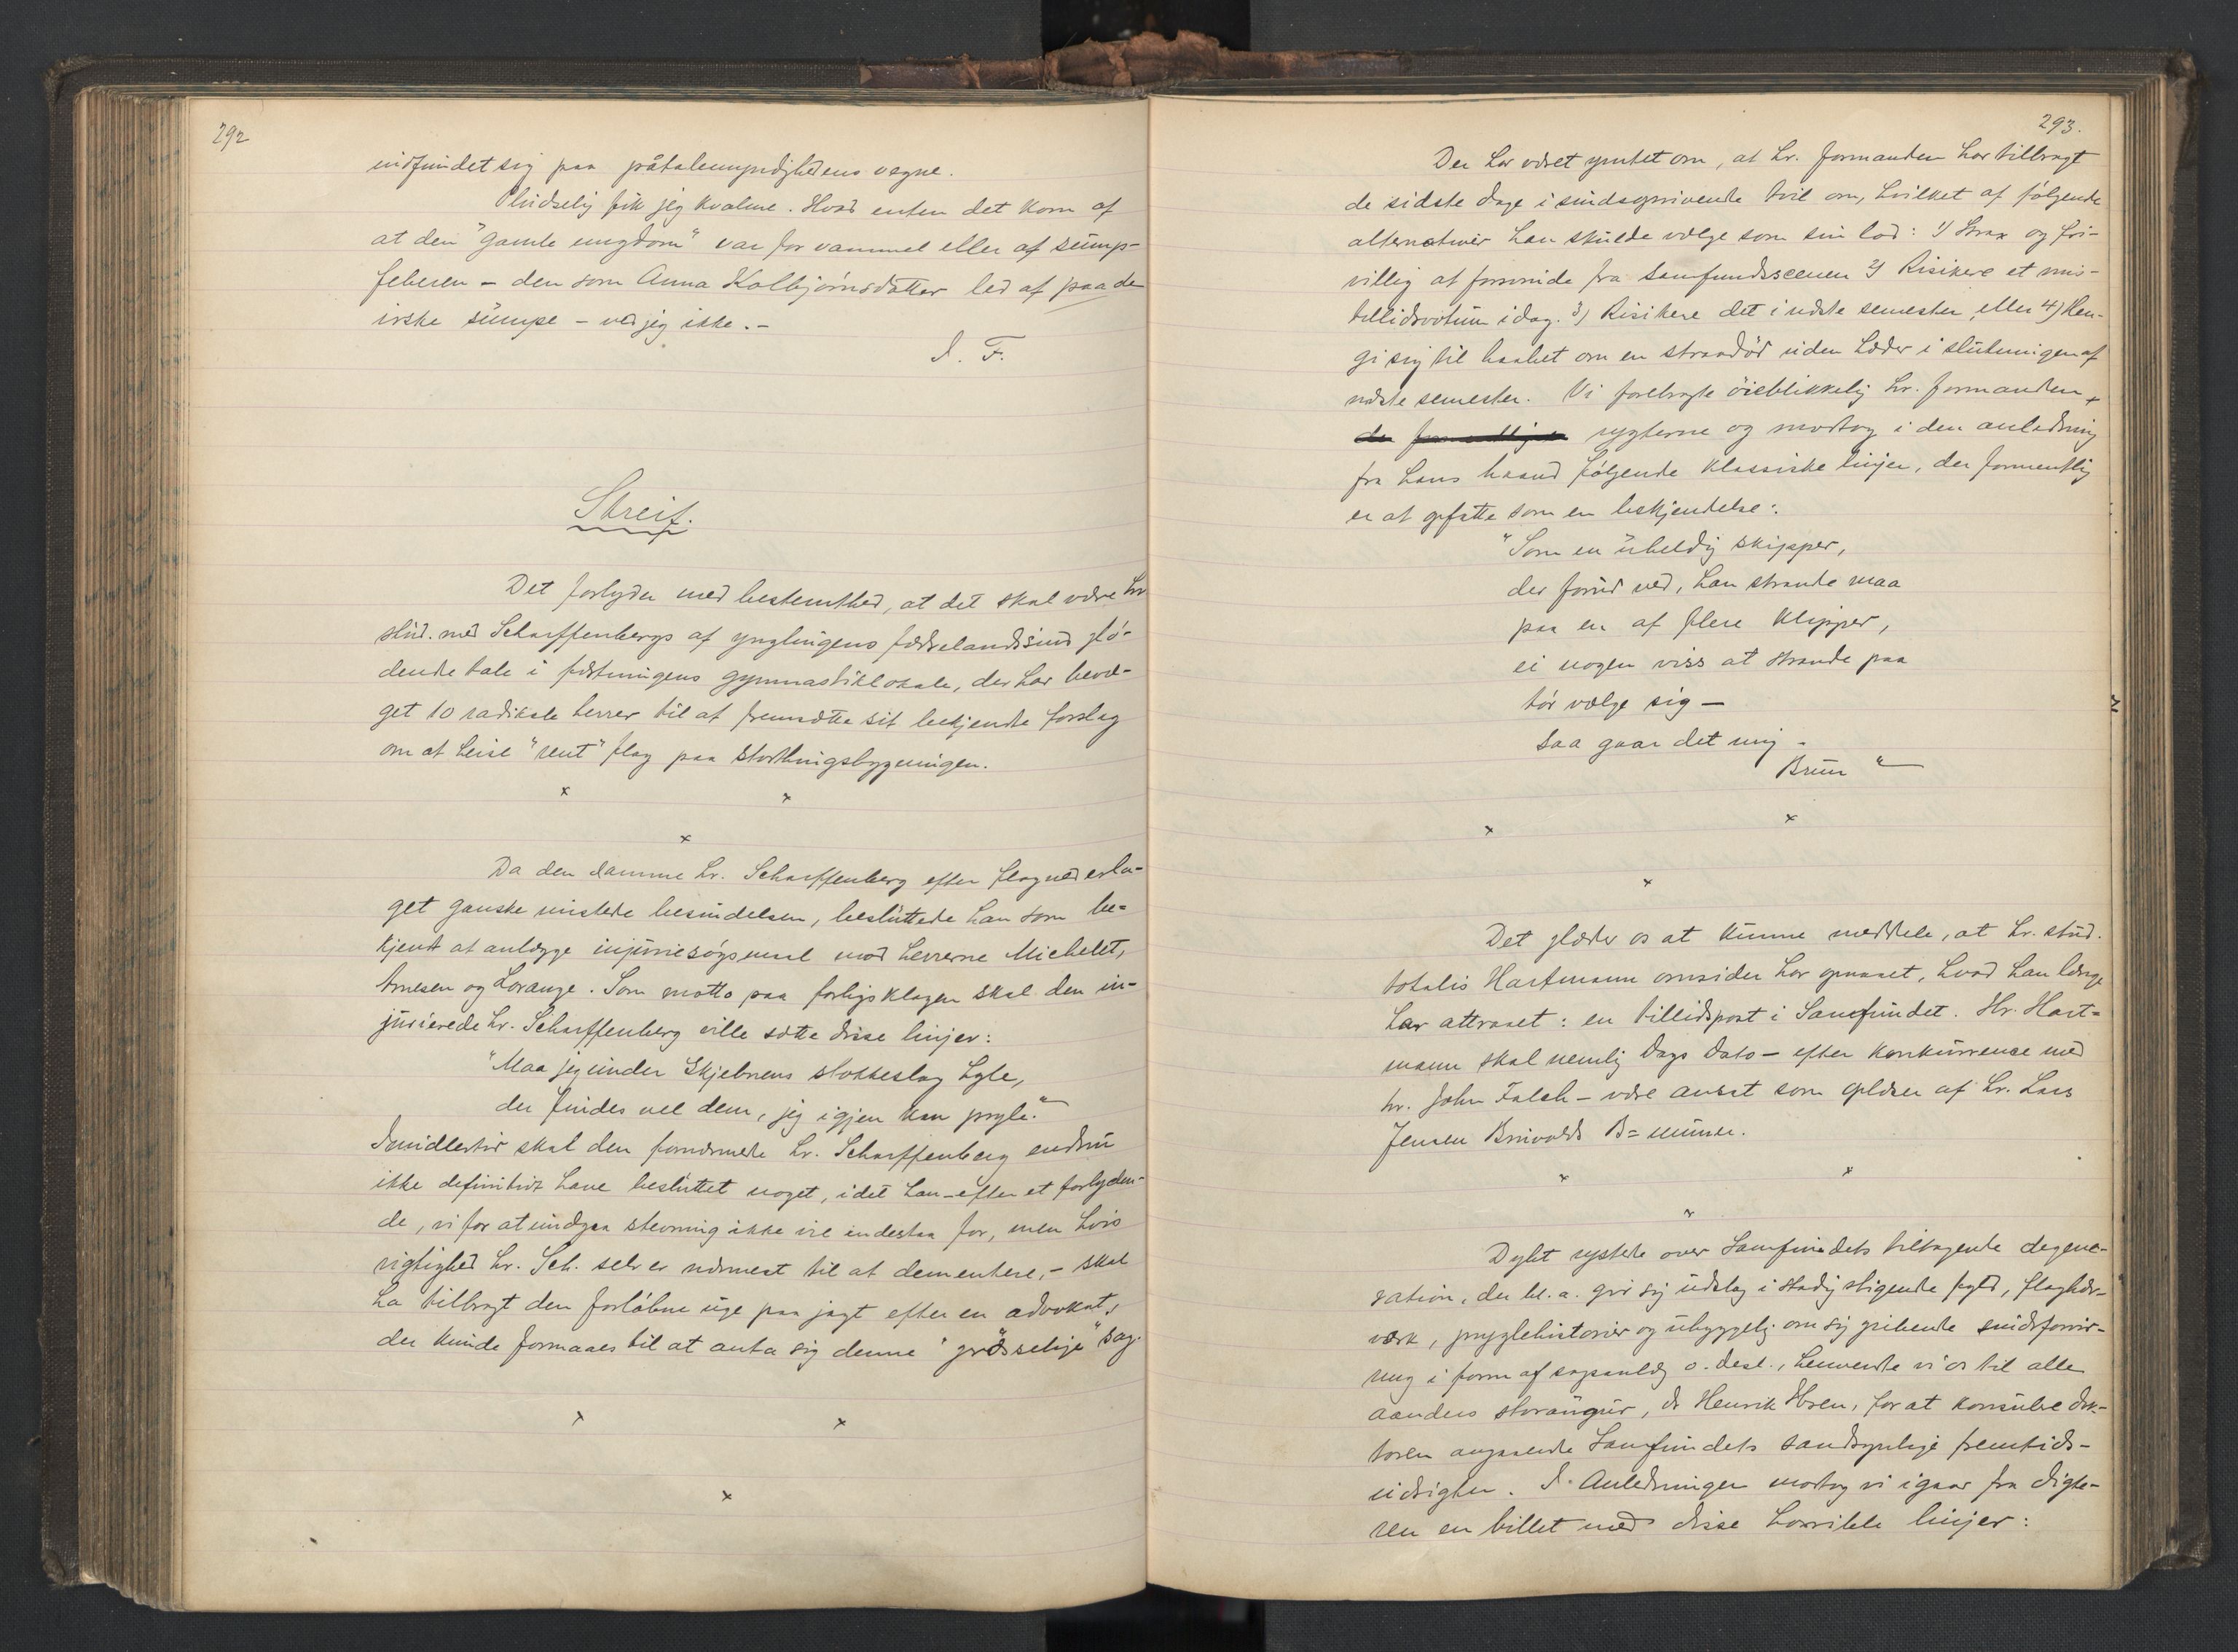 292
indfundet sig paa påtalemyndighedens vegne.
Pludselig fik jeg kvalme. Hvad enten det kom af
at den "gamle ungdom" var for vammel eller af sump-
feberen – den som Anna Kolbjørnsdatter led af paa de
irske sumpe – ved jeg ikke. –
J. F.
Streif.
Det forlyder med bestemthed, at det skal være hr
stud. med Scharffenbergs af ynglingens fædrelandssind glø-
dende tale i fæstningens gymnastiklokale, der har bevæ-
get 10 radikale herrer til at fremsætte sit bekjendte forslag
om at heise "rent" flag paa storthingsbygningen.
x x
x
Da den samme hr. Scharffenberg efter flagnederla-
get ganske mistede besindelsen, besluttede han som be-
kjendt at anlægge injuriesøgsmaal mod herrerne Michelet,
Arnesen og Lorange. Som motto paa forligsklagen skal den in-
jurierede hr. Scharffenberg ville sætte disse linjer:
"Maa jeg under Skjebnens stokkeslag hyle,
der findes vel dem, jeg igjen kan pryle."
Imidlertid skal den fornærmede hr. Scharffenberg endnu
ikke definitivt have besluttet noget, idet han – efter et forlyden-
de, vi for at undgaa stevning ikke vil indestaa for, men hvis
rigtighed hr. Sch. selv er nærmest til at dementere, – skal
ha tilbragt den forløbne uge paa jagt efter en advokat,
der kunde formaaes til at anta sig denne "grässelige" sag.
x x
x
293.
Der har været ymtet om, at hr. formanden har tilbragt
de sidste dage i sindsoprivende tvil om, hvilket af følgende
alternativer han skulde vælge som sin lod: 1) Strax og fri-
villig at forsvinde fra Samfundsscenen 2) Risikere et mis-
tillidsvotum idag. 3) Risikere det i næste semester, eller 4) Hen-
gi sig til haabet om en straadød uden hæder i slutningen af
næste semester. Vi forelagte øieblikkelig hr. formanden
rygterne og modtog i den anledning
fra hans haand følgende klassiske linjer, der formentlig
er at opfatte som en bekjendelse:
"Som en uheldig skipper,
der forud ved, han strande maa
paa en af flere klipper,
ei nogen viss at strande paa
tør vælge sig –
saa gaar det mig –
Bruun"
x x
x
Det glæder os at kunne meddele, at hr. stud.
totalis Hartmann omsider har opnaaet, hvad han længe
har attraaet: en tillidspost i Samfundet. Hr. Hart-
mann skal nemlig dags dato – efter konkurrence med
hr. John Falch – være ansat som oplæser af hr. Lars
Jensen B=numre.
x x
x
Dybt rystede over Samfundets tiltagende degene-
ration, der bl. a. gir sig udslag i stadig stigende fyld, flaghær-
værk, pryglehistorier og uhyggelig om sig gribende sindsforvir-
ring i form af sagsanlæg o. desl., henvendte vi os til alle
aanders storaugur, dr Henrik Ibsen, for at konsulere dok-
toren angaaende Samfundets sandsynlige fremtids-
udsigter. I Anledningen modtog vi igaar fra digte-
ren en billet med disse horrible linjer: